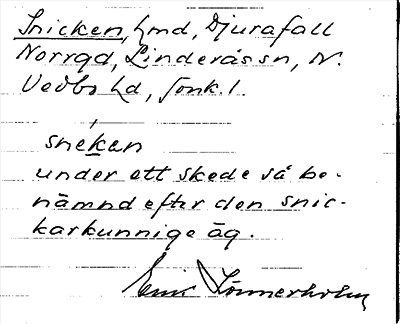 Snicken, hmd, Djurafall
Norrgd, Linderås sn, N.
Vedbo hd, Jönk. l.
snekan
under ett skede så be-
nämnd efter den snic-
karkunnige äg.
Emil Lönnerholm